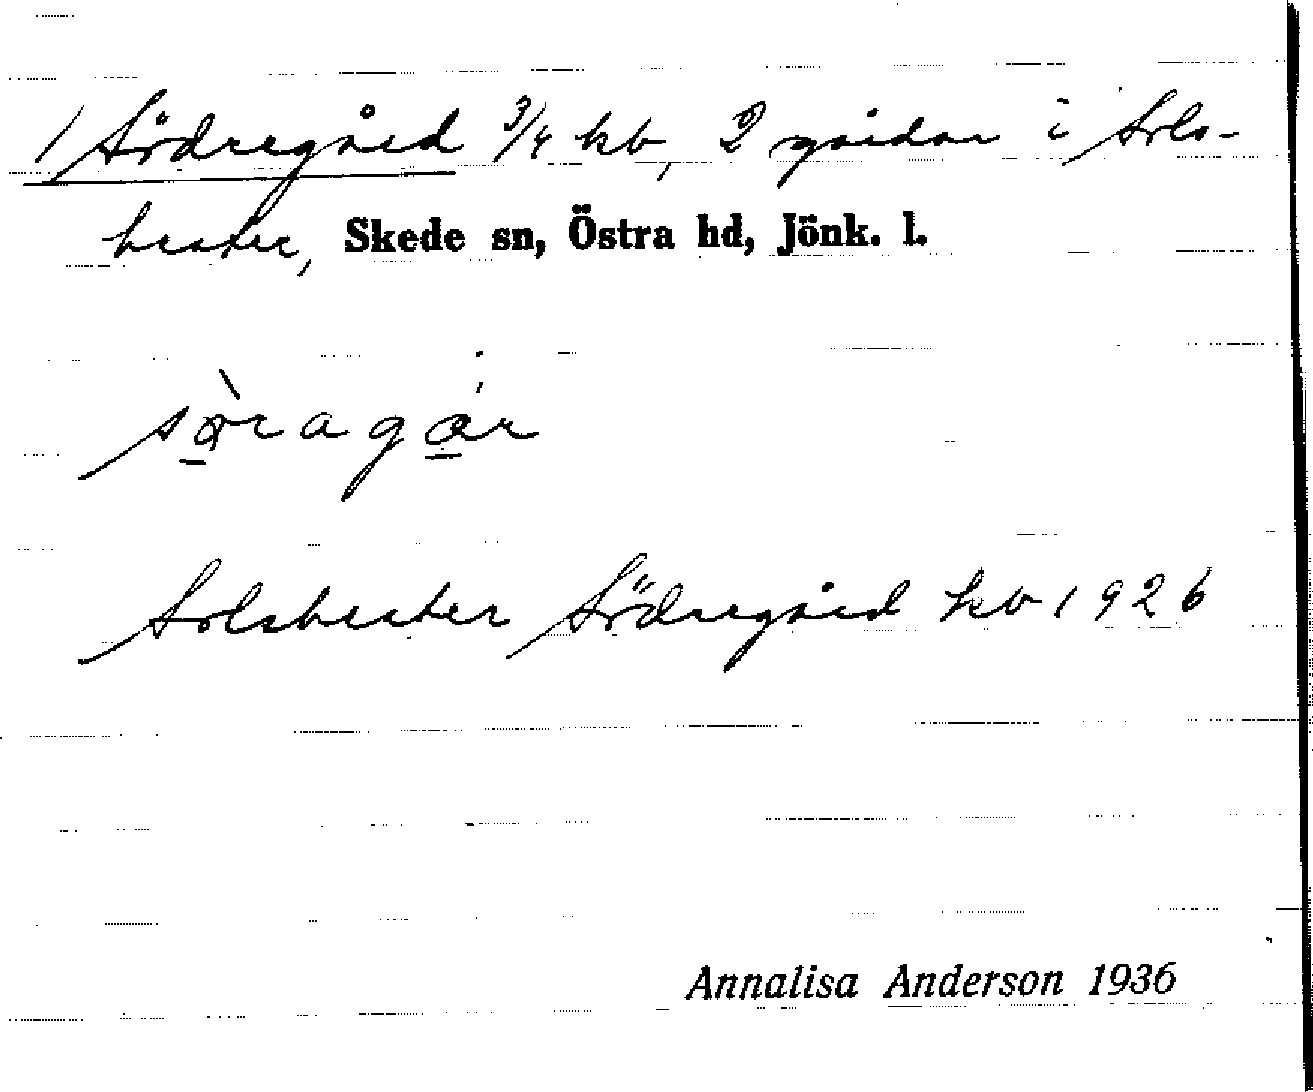 1 Södregård 3/4 kb, 2 gårdar i Sols-
brester, Skede sn, Östra hd, Jönk. l.
sø̀ragår
Solsbrester Södregård kb 1926
Annalisa Anderson 1936